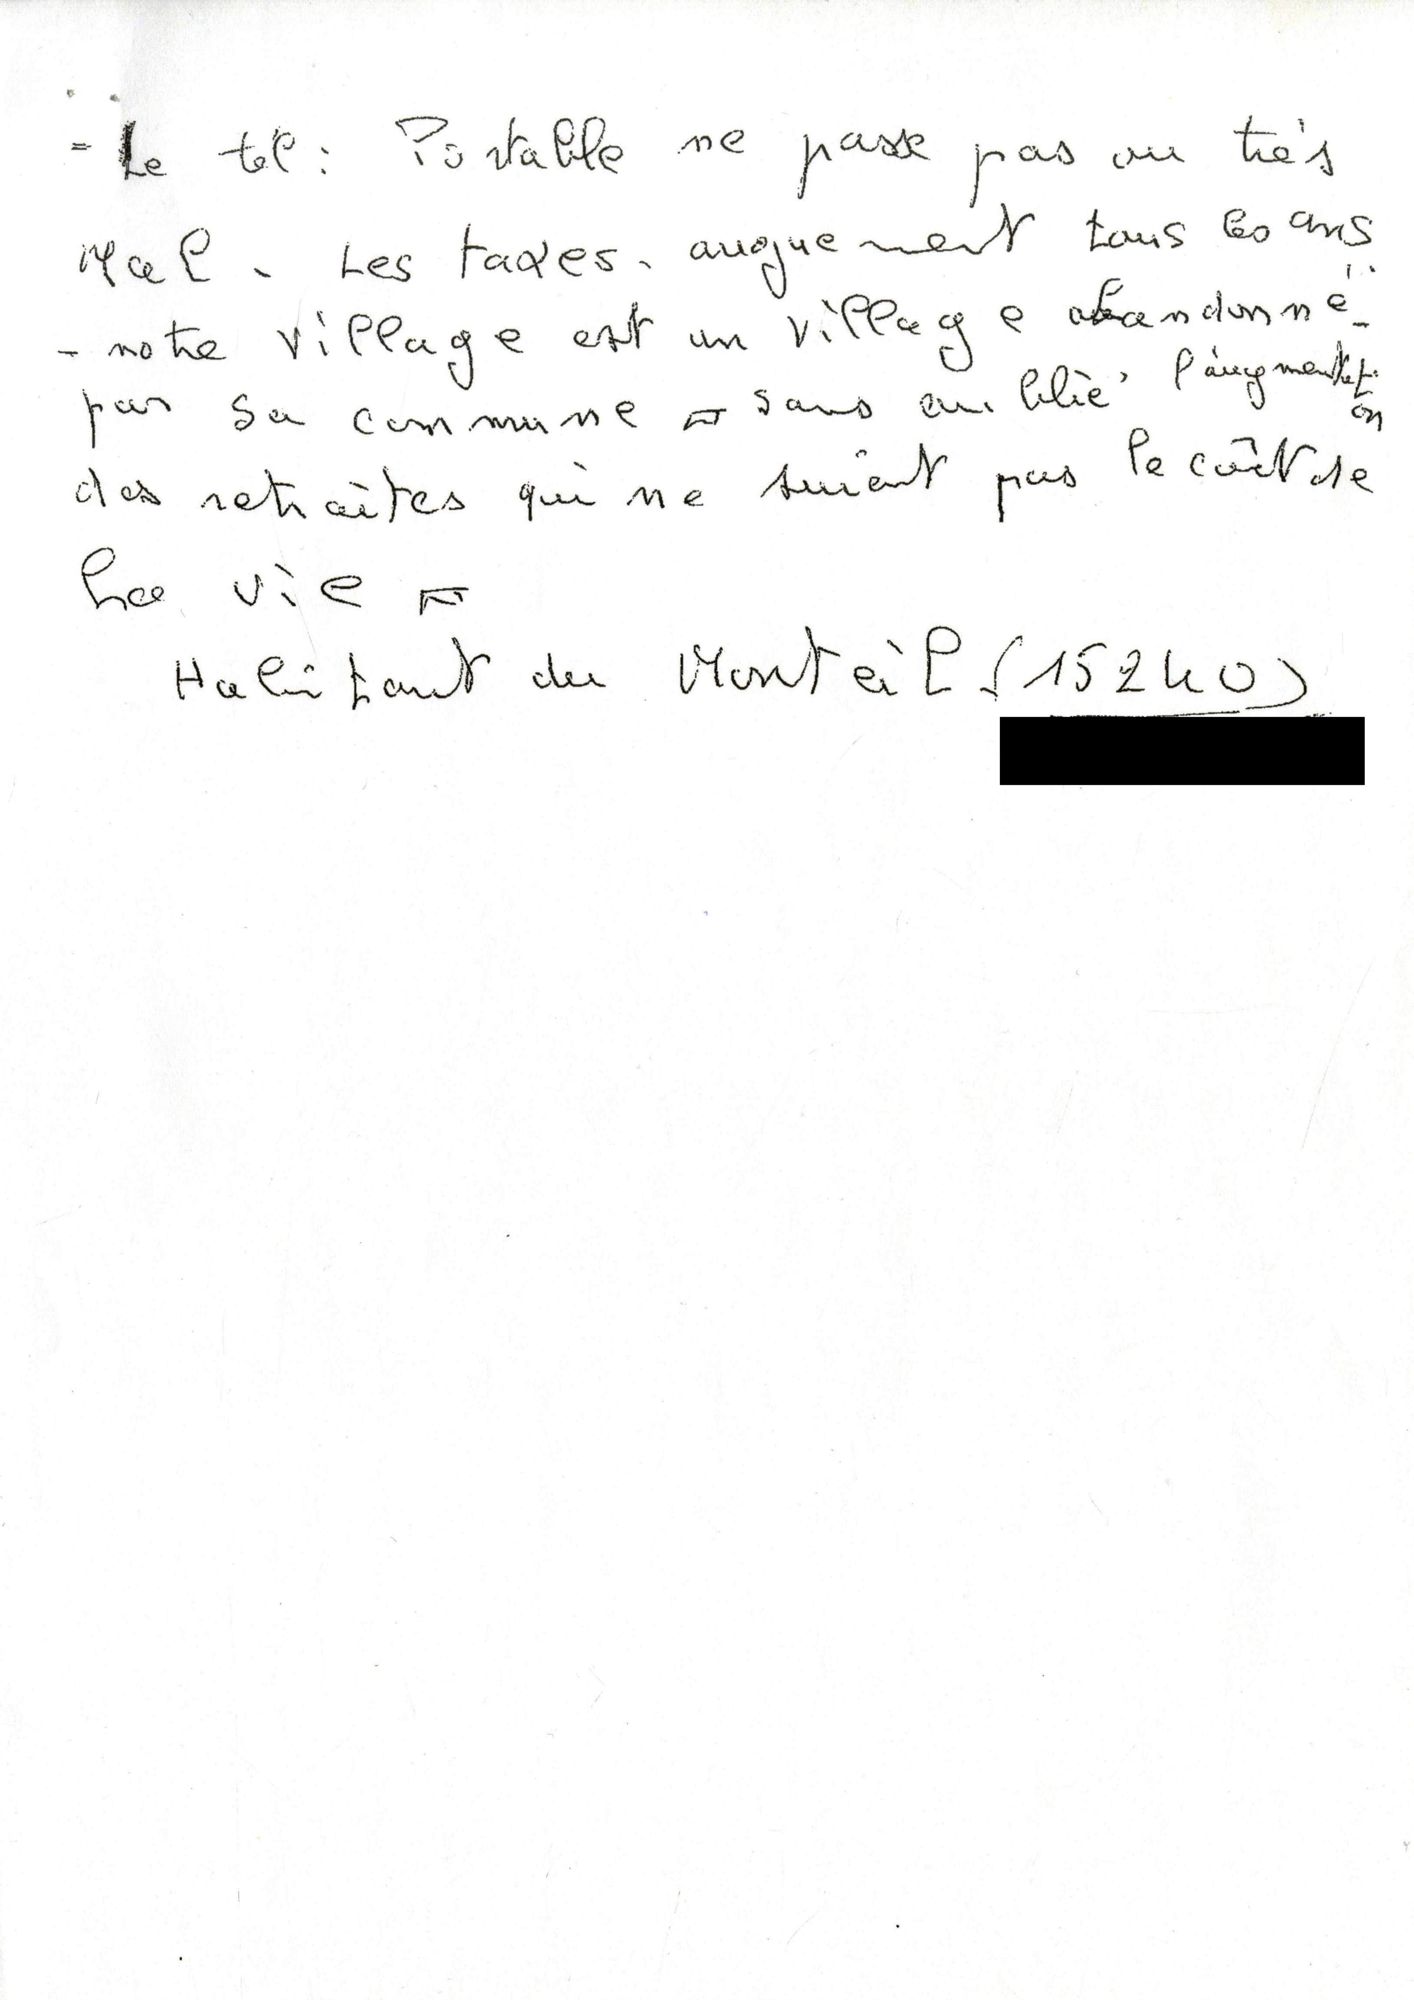 - Le tel: Portable ne passe pas ou très
Mal. Les taxes. augmement tous les ans
- notre village est un village abandonné-
par sa commune sans oublié l'augmentation
des retraites qui ne suient pas le coût de
la vie
Habitant du Monteil (15240)